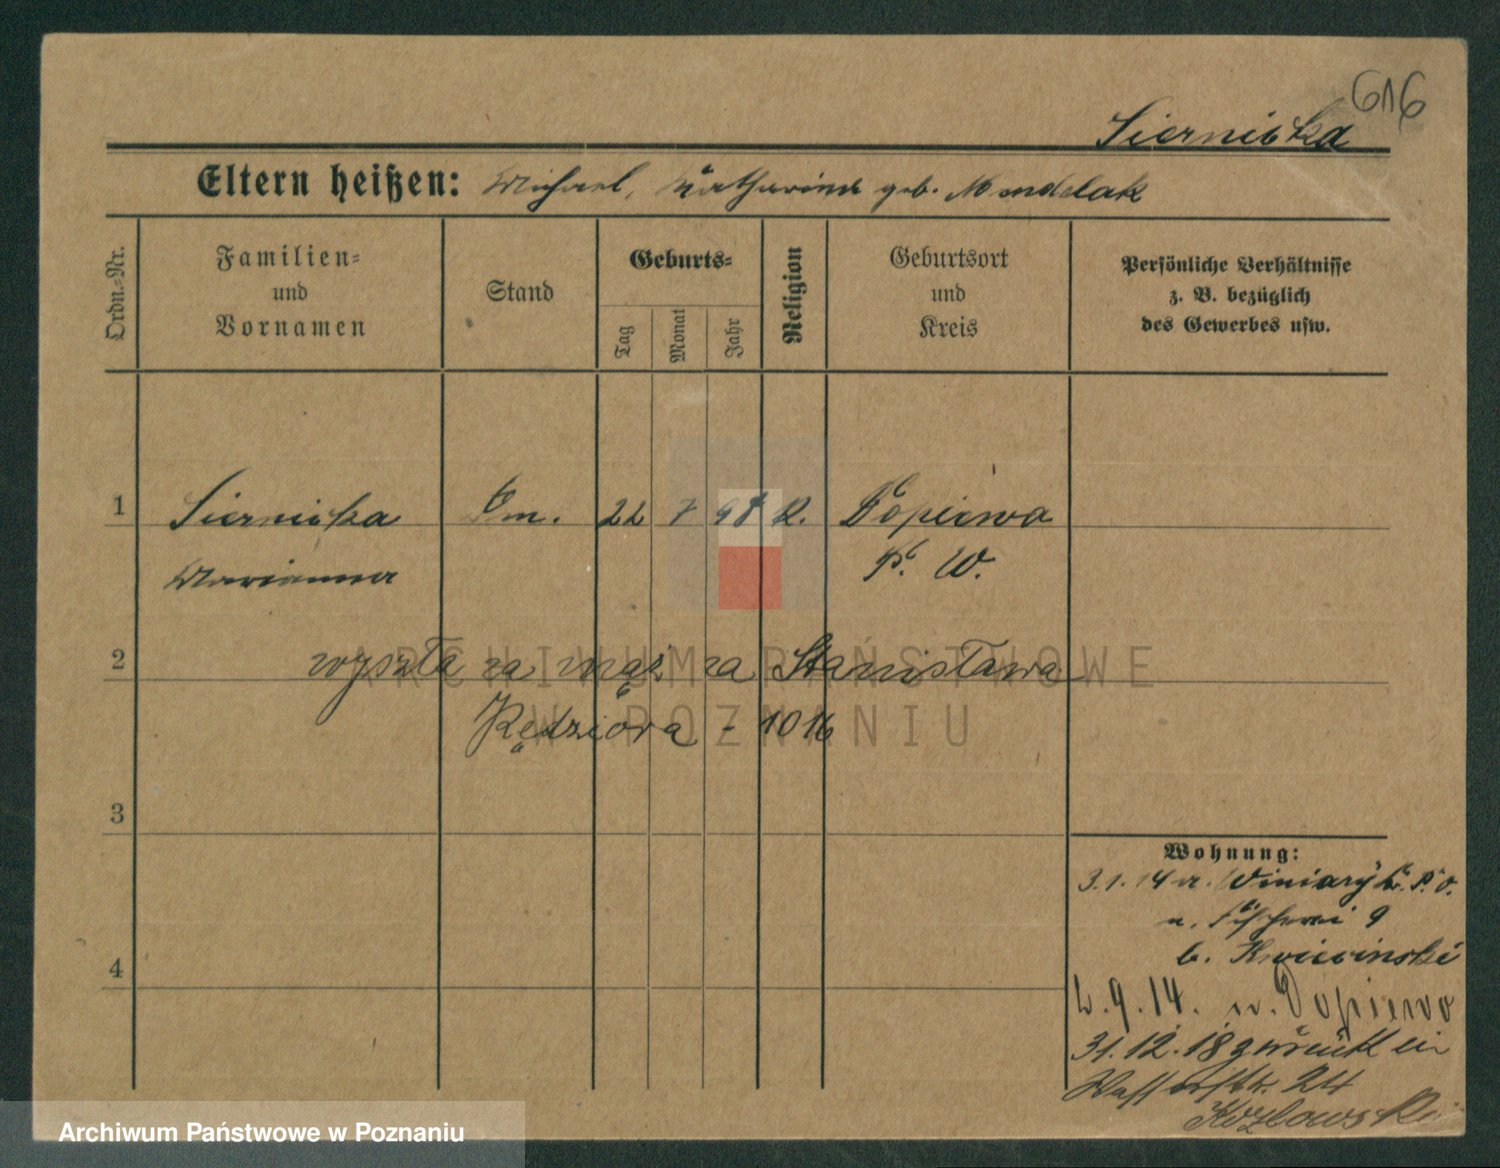 616
Siernicka
Eltern heißen: Michael, Katharina geb. Mendelak
Ordn.-Nr.
Familien-
und
Vornamen
Stand
Geburts-
Tag
Monat
Jahr
Religion
Geburtsort
und
Kreis
Persönliche Verhältnisse
z. B. bezüglich
des Gewerbes usw.
1 Siernicka 22 7 98 K. Dopiewa
Marianna P. W.
2 wyszła za mąż za Stanisława
Kędziora - 1016
3
4
Wohnung:
3.1.14 Winiary P. O.
9
b. Kwiecinski
2.9.14. n. Dopiewo
31.12.18 zurück in
Wasserstr. 24
Kozlowski
ARCHIWUM PAŃSTWOWE
W POZNANIU
Archiwum Państwowe w Poznaniu